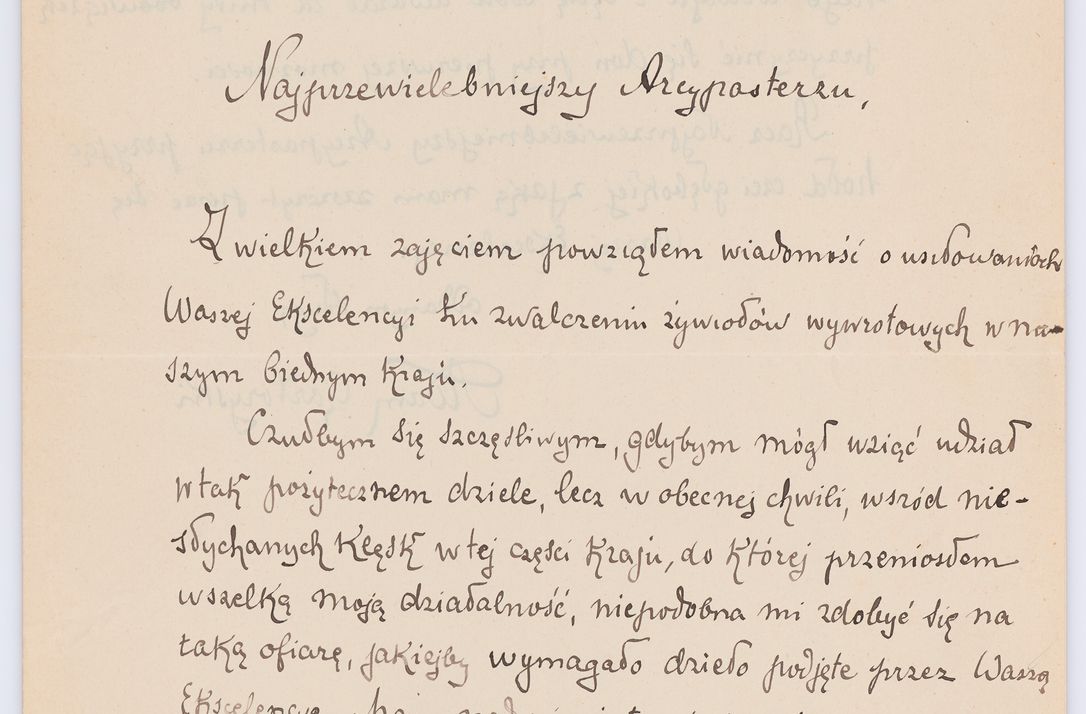 Najprzewielebniejszy Arcypasterzu,
Z wielkiem zajęciem powziąłem wiadomość o usiłowaniach
Waszej Ekscelencyi ku zwalczeniu żywiołów wywrotowych w na-
szym biednym Kraju.
Czułbym się szczęśliwym, gdybym mógł wziąć udział
w tak pożytecznem dziele, lecz w obecnej chwili, wsród nie-
słychanych klęsk w tej części Kraju, do której przeniosłem
wszelką moją działalność, niepodobna mi zdobyć się na
taką ofiarę, jakiejby wymagało dzieło podjęte przez Waszą